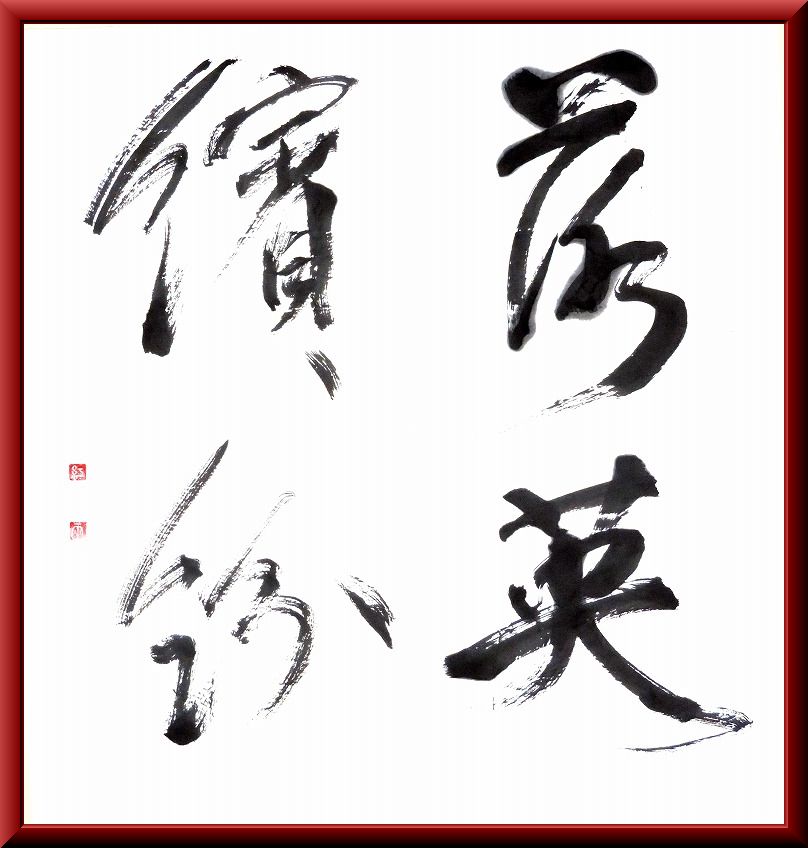 落英
繽紛